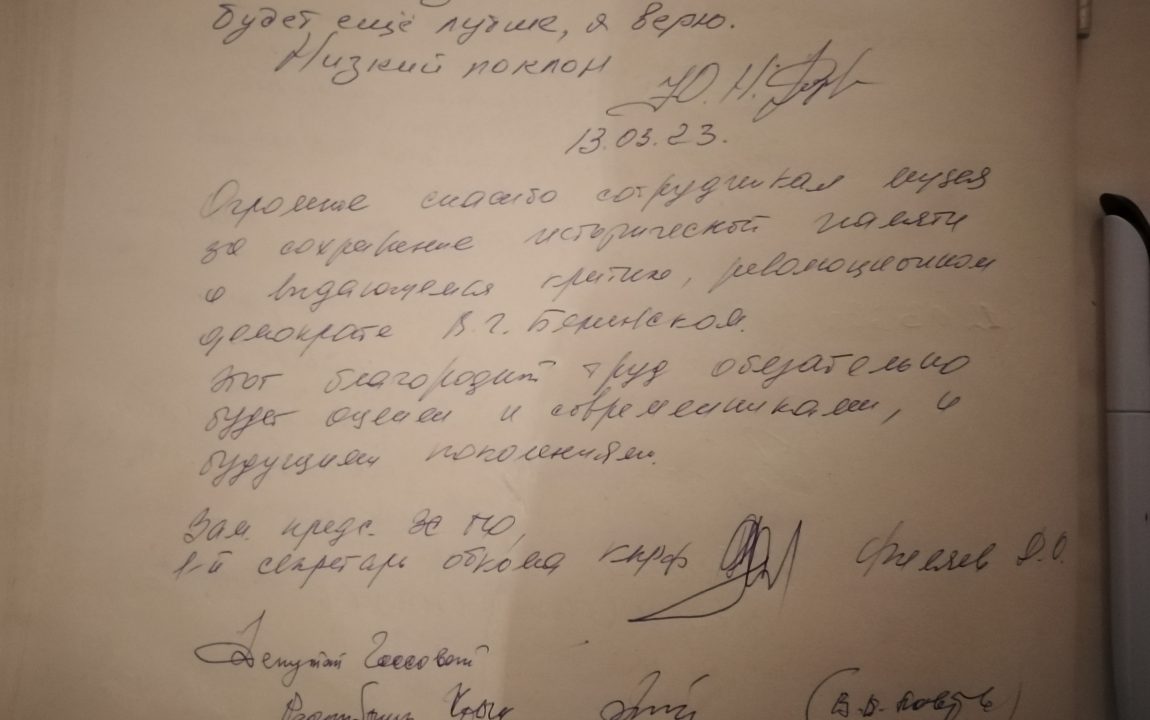 будет ещё лучше, я верю.
Низкий поклон
Ю. Н.
13.03.23.
Огромное спасибо сотрудникам музея
за сохранение исторической памяти
о выдающемся критике, революционном
демократе В. Г. Белинском.
Этот благородный труд обязательно
будет оценен и современниками, и
будущими поколениями.
Зам. предс. ЗС ПО,
1-й секретарь обкома КПРФ Филяев Д.О.
Депутат Госсовета
Республики Крым